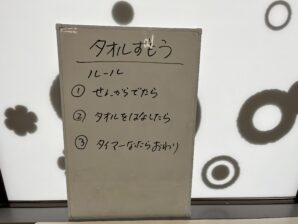 タオルすもう
ルール
① せんからでたら
② タオルをはなしたら
③ タイマーなったらおわり